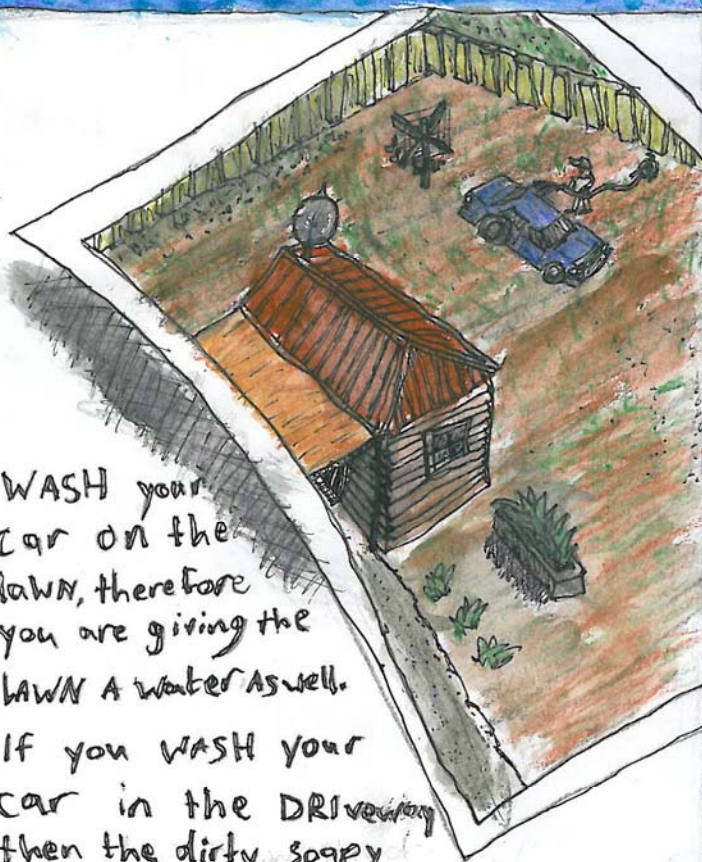 WASH your
car on the
lAWN, therefore
you are giving the
LAWN A water AS well.
If you WASH your
car in the DRIveway
then the dirty, soapy